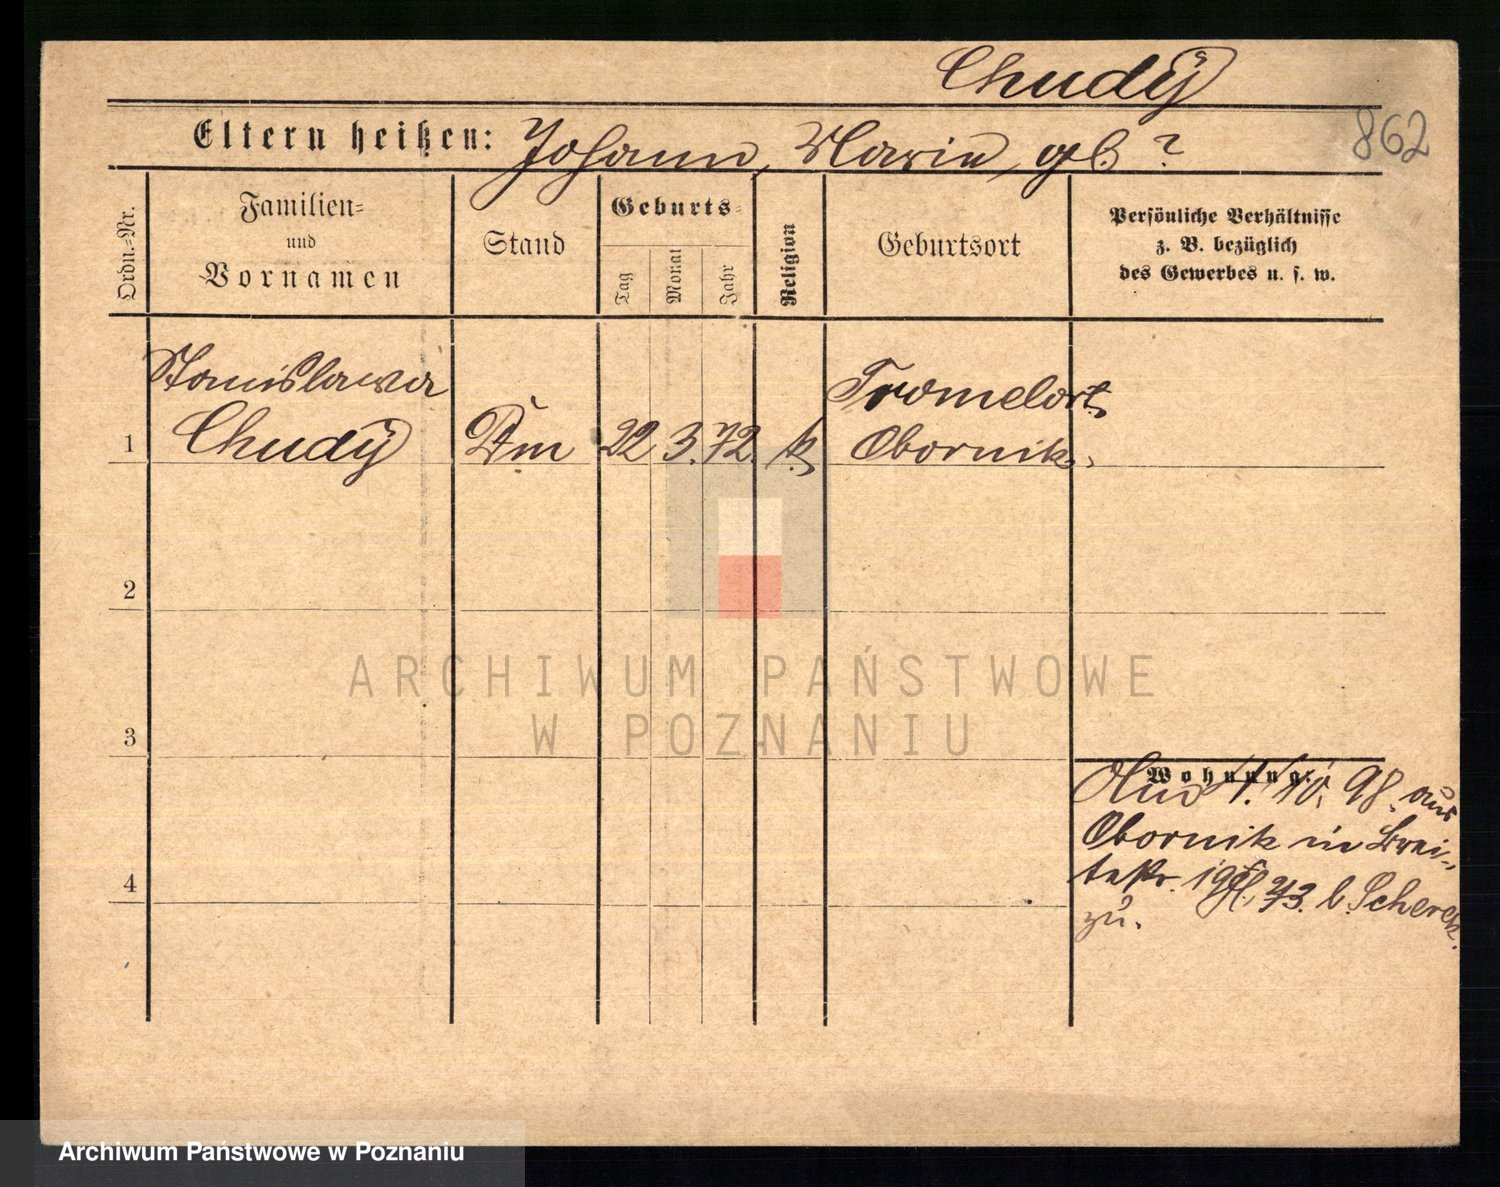 Chudÿ
862
Eltern heißen: Johann, Marie gb ?
Ordn.-Nr.
Familien-
und
Vornamen
Stand
Geburts-
Tag
Monat
Jahr
Religion
Geburtsort
Persönliche Verhältnisse
z. B. bezüglich
des Gewerbes u. s. w.
1
Stanislawa
Chudÿ
22 3. 72.
k.
Obornik.
2
3
4
Wohnung:
10. 98. aus
Obornik in Brei-
testr. 19 b. Scherek.
zu.
ARCHIWUM PAŃSTWOWE
W POZNANIU
Archiwum Państwowe w Poznaniu